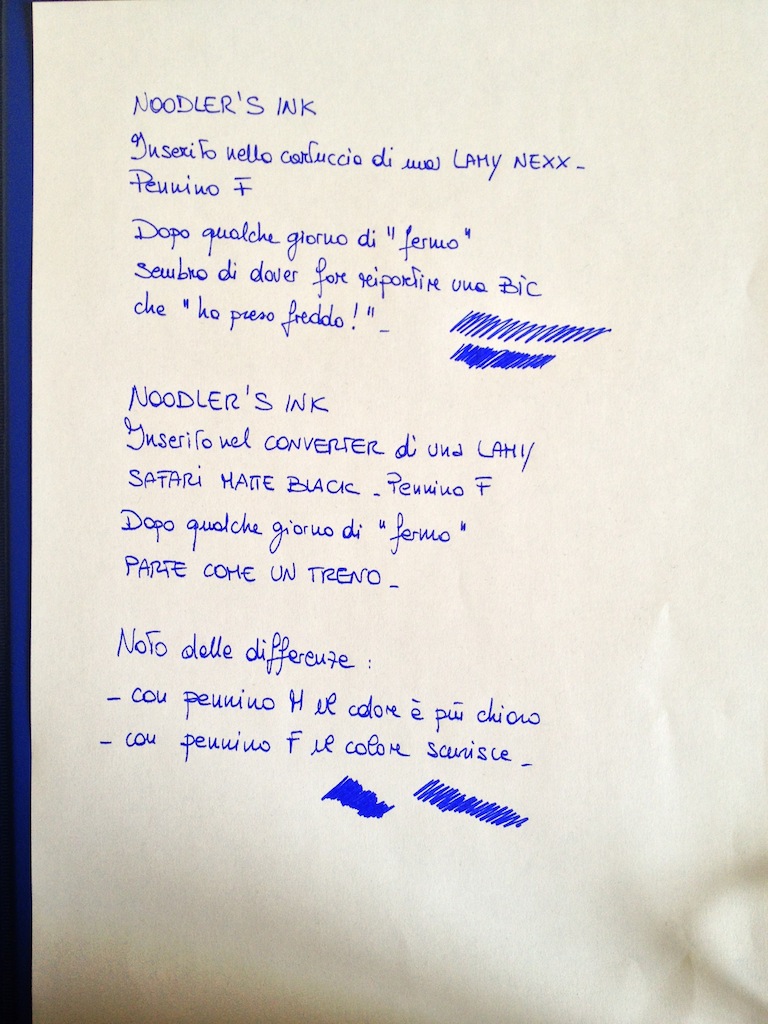 NOODLER'S INK
Inserito nella cartuccia di una LAMY NEXX -
Pennino F
Dopo qualche giorno di "fermo"
Sembra di dover fare ripartire una BIC
che "ha preso freddo!" -
NOODLER'S INK
Inserito nel CONVERTER di una LAMY
SAFARI MATTE BLACK - Pennino F
Dopo qualche giorno di "fermo"
PARTE COME UN TRENO -
Noto delle differenze :
- con pennino M il colore è più chiaro
- con pennino F il colore scurisce -